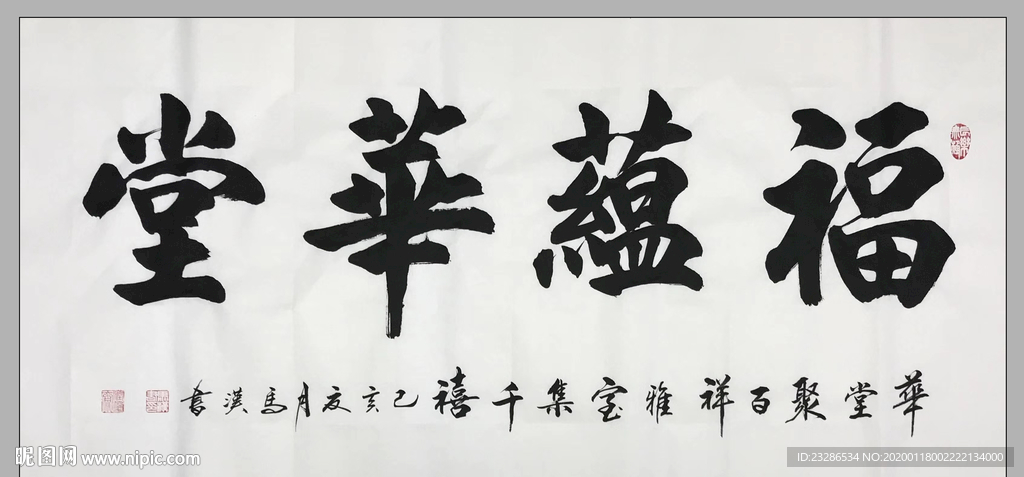 福蘊華堂
華堂聚百祥雅室集千禧己亥夏月馬漢書
昵图网 www.nipic.com
ID:23286534 NO:20200118002222134000